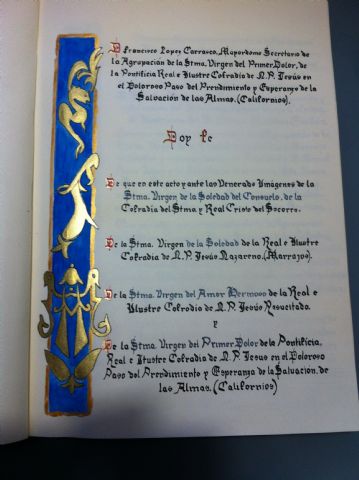 D. Francisco Lopez Carrasco, Mayordomo Secretario de
la Agrupación de la Stma. Virgen del Primer Dolor, de
la Pontificia Real e Ilustre Cofradia de N.P. Jesús en
el Doloroso Paso del Prendimiento y Esperanza de la
Salvación de las Almas. (Californios).
Doy fe
De que en este acto y ante las Venerado Imágenes de la
Stma. Virgen de la Soledad del Consuelo, de la
Cofradia del Stmo y Real Cristo del Socorro.
De la Stma. Virgen de la Soledad de la Real e Ilustre
Cofradia de N.P. Jesús Nazareno. (Marrajos).
De la Stma. Virgen del Amor Hermoso de la Real e
Ilustre Cofradia de N.P. Jesús Resucitado.
y
De la Stma. Virgen del Primer Dolor de la Pontificia,
Real e Ilustre Cofradia de N.P. Jesus en el Doloroso
Paso del Prendimiento y Esperanza de la Salvación, de
las Almas. (Californios)